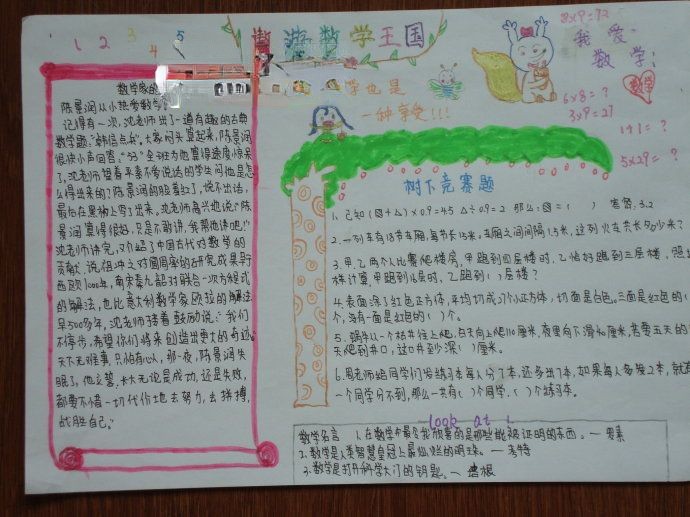 1 2 3 4 5
遨游数学王国
8×9=72
我爱
数学:
数学
6×8=?
3×9=27
1+1=?
5×29=?
学也是
一种享受!!!
数学家的
陈景润从小热爱数学
记得有一次,沈老师出了一道有趣的古典
数学题:"韩信点兵"。大家闷头算起来,陈景润
很快小声回答:"53"全班为他算得速度惊呆
了,沈老师望着平素不爱说话的学生问他是怎
么得出来的?陈景润的脸羞红了,说不出话,
最后在黑板上写了出来。沈老师高兴地说:"陈
景润算得很好,只是不敢讲,我帮他讲吧!"
沈老师讲完,又介绍了中国古代对数学的
贡献,说祖冲之对圆周率的研究成果早于
西欧1000年,南宋秦九韶对联合一次方程式
的解法,也比意大利数学家欧拉的解法
早500多年,沈老师接着鼓励说:"我们
不停步,希望你们将来创造出更大的奇迹。
天下无难事,只怕有心人,那一夜,陈景润失
眠了,他立誓:长大无论是成功,还是失败,
都要不惜一切代价地去努力,去拼搏,
战胜自己。"
树下竞赛题
1. 已知(囗+△)×0.9=4.5 △÷0.9=2 那么:囗=( ) 答:3.2
2. 一列车有18节车厢,每节长15米。车厢之间间隔1.5米,这列火车共长多少米?
3. 甲、乙两个人比赛爬楼房,甲跑到四层楼时,乙恰好跑到三层楼,照
计算,甲跑到16层时,乙跑到( )层楼?
4. 表面涂了红色正方体,平均切成27个小正方体,切面是白色。三面是红色的(
个,没有一面是红色的( )个。
5. 蜗牛从一个枯井往上爬,白天向上爬110厘米,夜里向下滑40厘米,若要五天的
天爬到井口,这口井至少深( )厘米。
6. 周老师给同学们发练习本每人分7本,还多出7本,如果每人多发2本,就有
一个同学分不到,那么一共有( )个同学,( )个练习本。
look at
数学名言 1. 在数学中最令我欣喜的是那些能被证明的东西。—罗素
2. 数学是人类智慧皇冠上最灿烂的明珠。—考特
3. 数学是打开科学大门的钥匙。—培根